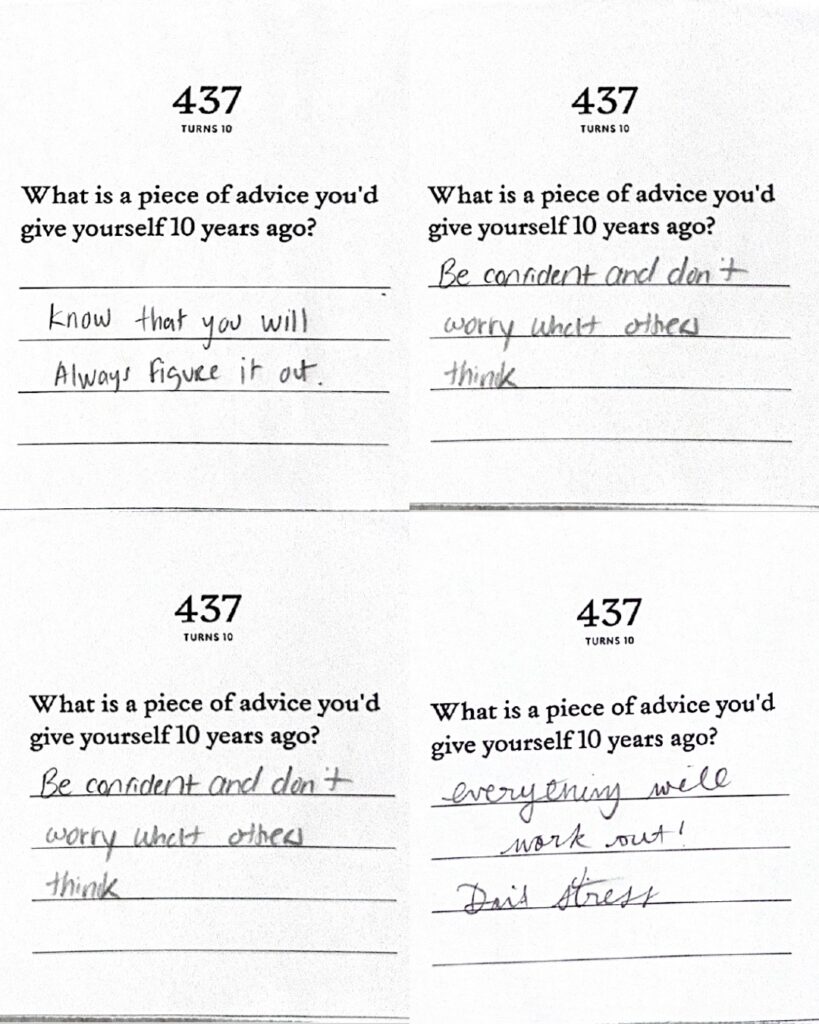 437
TURNS 10
What is a piece of advice you'd
give yourself 10 years ago?
Know that you will
Always figure it out.
437
TURNS 10
What is a piece of advice you'd
give yourself 10 years ago?
Be confident and don't
worry what others
think
437
TURNS 10
What is a piece of advice you'd
give yourself 10 years ago?
Be confident and don't
worry what others
think
437
TURNS 10
What is a piece of advice you'd
give yourself 10 years ago?
everything will
work out!
Don't stress